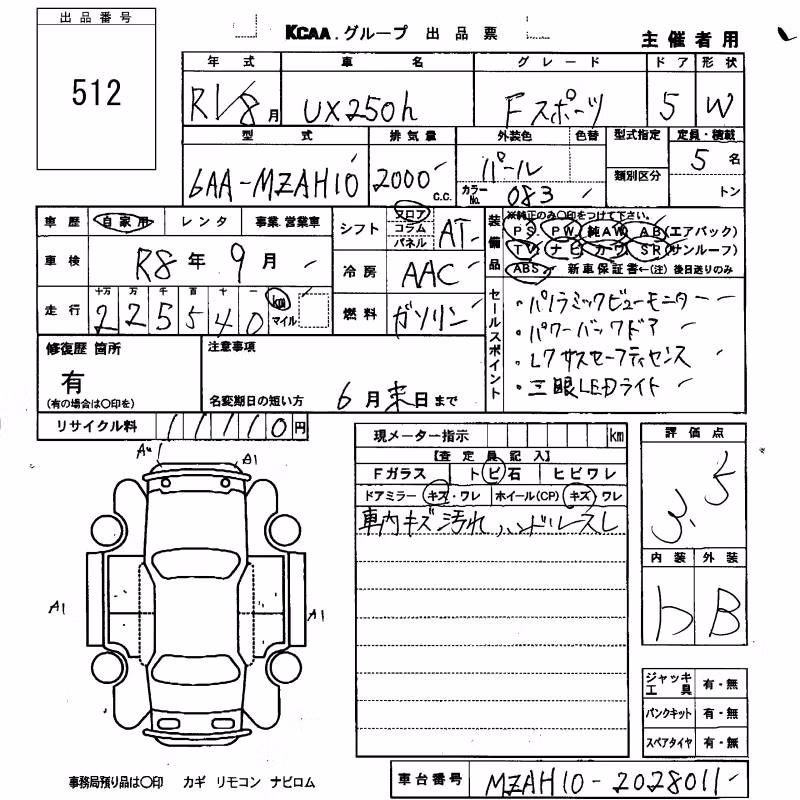 出品番号
512
KCAA.グループ 出品票
主催者用
年式 車名 グレード ドア 形状
R1/8月 UX250h Fスポーツ 5 W
型式 排気量 外装色 色替 型式指定 定員・積載
6AA-MZAH10 2000c.c. パール 類別区分 5名
カラーNo. 083 トン
車歴 自家用 レンタ 事業 営業車
シフト フロア コラム パネル AT
装備品
※純正のみ○印をつけて下さい。
PS PW 純AW AB(エアバック)
TV ナビ カワ SR(サンルーフ)
ABS 新車保証書←(注)後日送りのみ
車検 R8年9月
冷房 AAC
走行 十万 万 千 百 十 一
225540 km マイル
燃料 ガソリン
セールスポイント
・パノラミックビューモニター
・パワーバックドア
・レクサスセーフティセンス
・三眼LEDライト
修復歴 箇所
有
(有の場合は○印を)
注意事項
名変期日の短い方 6月末日まで
リサイクル料 11110円
A1
A1
A1
現メーター指示 km
【査定員記入】
Fガラス トビ石 ヒビワレ
ドアミラー キズ・ワレ ホイール(CP) キズ・ワレ
車内キズ 汚れ ハンドルスレ
評価点
3.5
内装 外装
b B
ジャッキ工具 有・無
パンクキット 有・無
スペアタイヤ 有・無
事務局預り品は○印 カギ リモコン ナビロム
車台番号 MZAH10-2028011